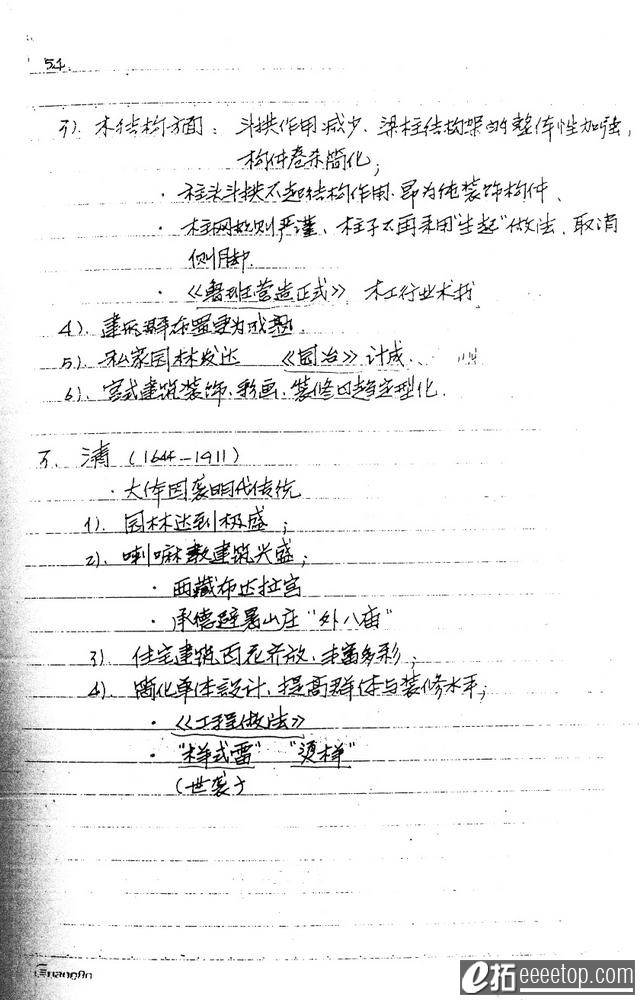 54.
3). 木结构方面: 斗拱作用减少、梁柱结构架的整体性加强,
构件卷杀简化;
· 柱头斗拱不起结构作用.昂为纯装饰构件、
· 柱网规则严谨、柱子不再采用“生起”做法、取消
侧脚.
· 《鲁班营造正式》 木工行业术书
4). 建筑群布置更为成熟.
5). 私家园林发达 《园冶》计成.
6). 宫式建筑装饰.彩画、装修日趋定型化.
清 (1644-1911)
· 大体因袭明代传统
1). 园林达到极盛;
2). 喇嘛教建筑兴盛;
· 西藏布达拉宫
· 承德避暑山庄“外八庙”
3) 住宅建筑百花齐放.丰富多彩;
4). 简化单体设计.提高群体与装修水平;
· 《工程做法》
· “样式雷” “烫样”
(世袭)
Guangbo
e拓 eeeetop.com